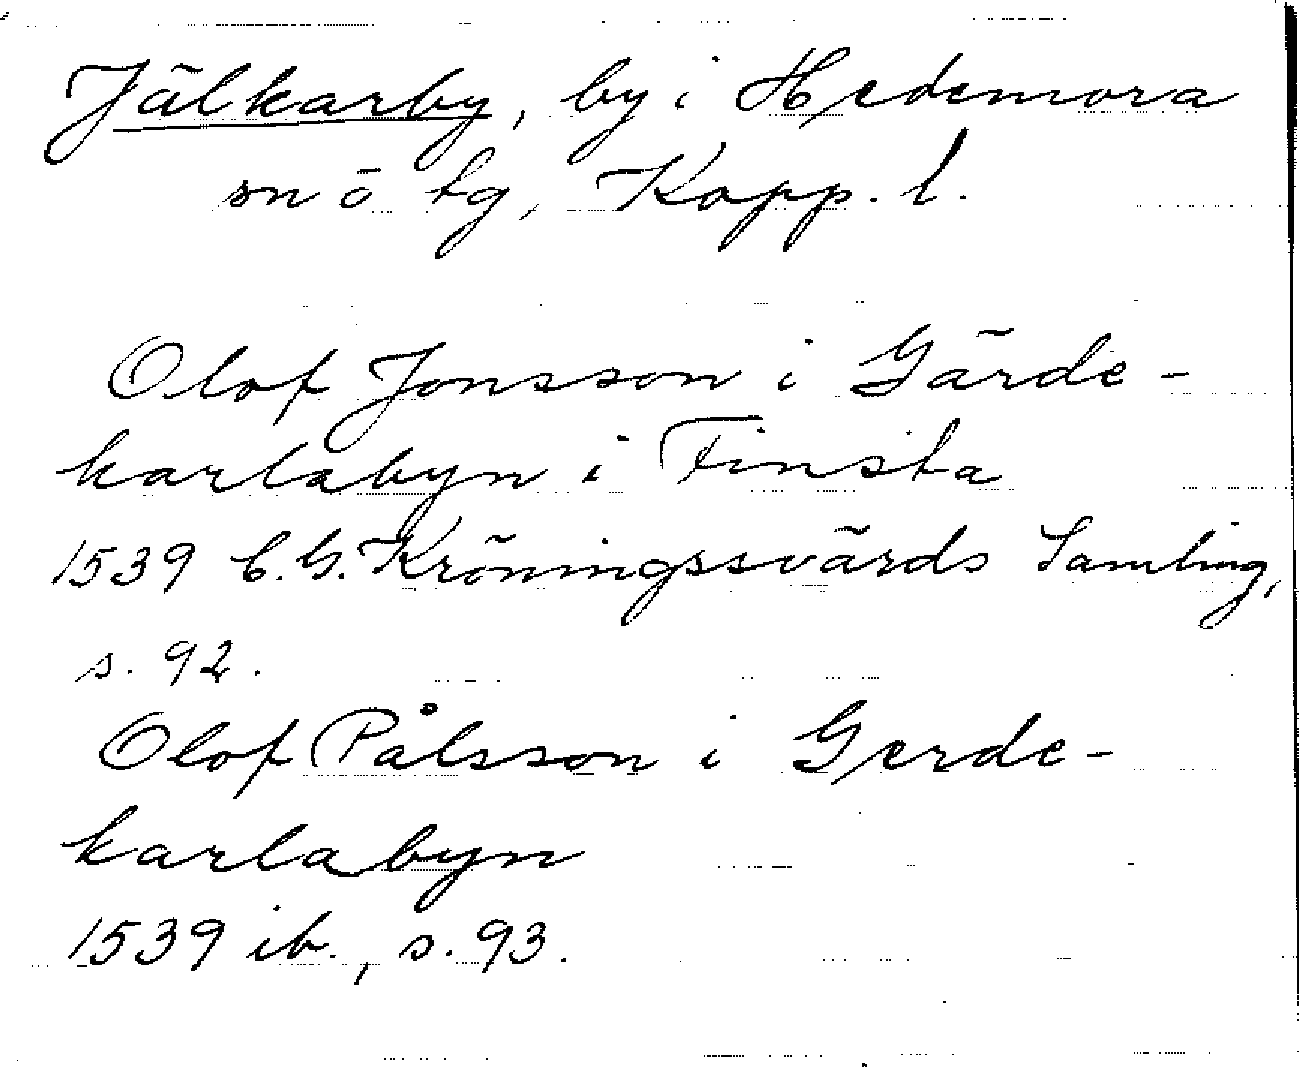 Jälkarby, by i Hedemora
sn ö tg, Kopp. l.
Olof Jonsson i Gärde-
karlabyn i Finsta
1539 C.G. Kröningssvärds Samling,
s. 92.
Olof Pålsson i Gerde-
karlabyn
1539 ib., s. 93.